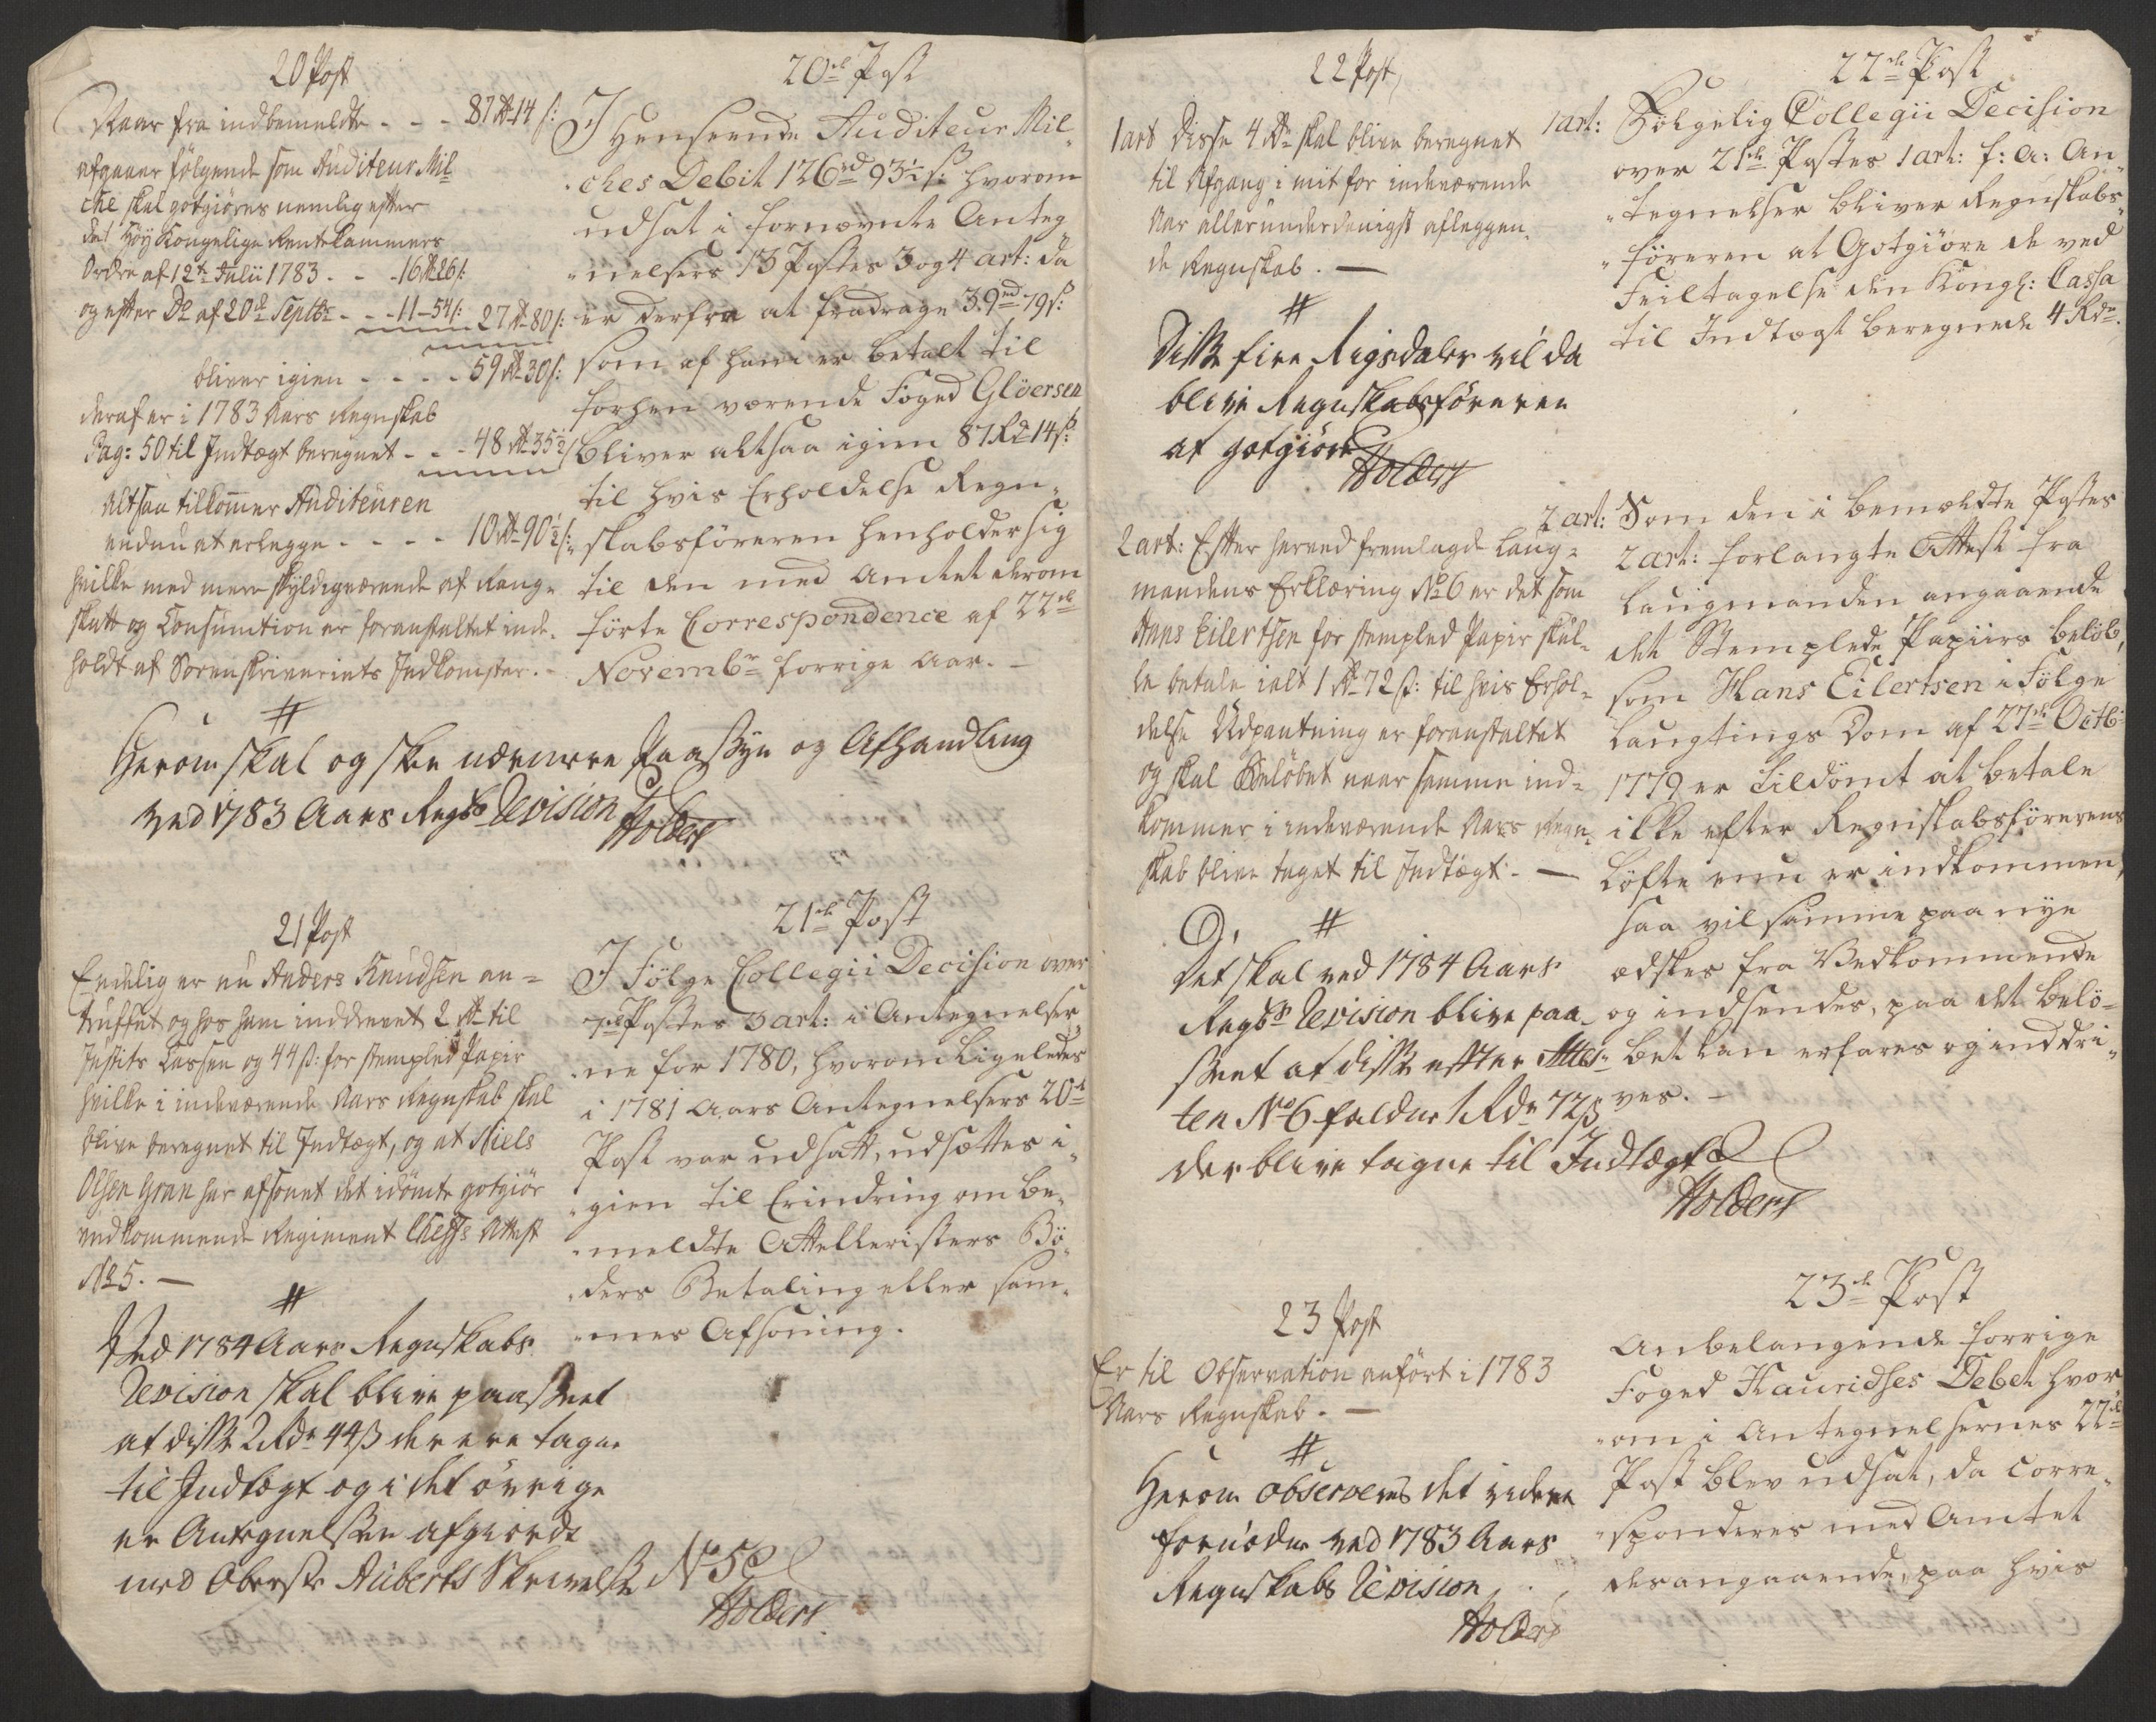 20 Post
Naar fra indbemeldte - - - 87 Rd 14 s:
afgaaer følgende som Auditeur Mil-
che skal godtgiøres nemlig efter
det Høy Kongelige Rentekammers
Ordre af 12te Julii 1783 - - - 16 Rd 26 s:
og efter Do af 20de Septbr - - - 11 - 54 s: 27 Rd 80 s:
bliver igien - - - - 59 Rd 30 s:
deraf er i 1783 Aars Regnskab
Pag: 50 til Indtægt beregnet - - - 48 Rd 35½
Altsaa tilkommer Auditeuren
endnu at erlegge - - - - 10 Rd 90½ s:
hvilke med mere skyldigværende af Rang-
skatt og Consumtion er foranstaltet inde-
holdt af Sorenskriveriets Indkomster. -
#
Herom skal og skee nærmere Paasyn og Afhandling
ved 1783 Aars Regsbs Revision
Holdert
21 Post
Endelig er nu Anders Knudsen an-
truffet og hos ham inddrevet 2 Rd til
Justits Cassen og 44 s: for stemplet Papir
hvilke i indeværende Aars Regnskab skal
blive beregnet til Indtægt, og at Niels
Olsen Gran har afsonet det idømte godtgiør
vedkommende Regiment Cheffs Attest
No 5. -
#
Ved 1784 Aars Regnskabs
Revision skal blive paaseet
at disse 2 Rdr 44 s der ere tagne
til Indtægt og i det øvrige
er Antegnelsen afgiordt
med Oberste Auberts Skrivelse No 5
Holdert
20de Post
I Henseende Auditeur Mil-
ches Debit 126 rd 93½ s: hvorom
udsat i fornævnte Anteg-
nelsers 13 Postes 3 og 4 art: da
er derfra at fradrage 39 rd 79 s:
som af ham er betalt til
forhen værende Foged Glöersen
bliver altsaa igien 87 Rd 14 s:
til hvis Erholdelse Regn-
skabsføreren henholder sig
til den med Amtet derom
førte Correspondence af 22de
Novembr forrige Aar. -
21de Post
I Følge Collegii Decision over
7de Postes 3 art: i Antegnelser-
ne for 1780, hvorom Ligeledes
i 1781 Aars Antegnelsers 20de
Post var udsatt, udsættes i-
gien til Erindring om be-
meldte Attelleristers Bö-
ders Betaling eller sam-
mes Afsoning.
22 Post
1 art Disse 4 Rdr skal blive beregnet
til Afgang i mit for indeværende
Aar allerunderdanigst aflæggen-
de Regnskab. -
#
Disse fire Rigsdaler vil da
blive Regnskabsføreren
at godtgiøre
Holdert
2 art: Efter herved fremlagde Laug-
mandens Erklæring No 6 er det som
Hans Eilertsen for stemplet Papir skul-
le betale ialt 1 Rd 72 s: til hvis Erhol-
delse Udpantning er foranstaltet
og skal Beløbet naar samme ind-
kommer i indeværende Aars Regn-
skab blive taget til Indtægt. -
#
Det skal ved 1784 Aars
Regsbs Revision blive paa-
seet at disse efter Attes-
ten No 6 faldne 1 Rdr 72 s
der blive tagne til Indtægt
Holdert
23 Post
Er til Observation anført i 1783
Aars Regnskab. -
#
Herom observeres det videre
fornödne ved 1783 Aars
Regnskabs Revision
Holdert
22de Post
1 art: Følgelig Collegii Decision
over 21de Postes 1 art: f: a: An-
tegnelser bliver Regnskabs-
føreren at Godtgiøre de ved
Feiltagelse den Kongl: Cassa
til Indtægt beregnede 4 Rdr.
2 art: Som den i bemældte Postes
2 art: forlangte Attest fra
Laugmanden angaaende
det Stemplede Papiirs beløb,
som Hans Eilertsen i Følge
Laugtings Dom af 27de Octbr
1779 er tildömt at betale
ikke efter Regnskabsførerens
Løfte enu er indkommen,
saa vil samme paa nye
ædskes fra Vedkommende
og indsendes, paa det belø-
bet kan erfares og inddri-
ves. -
23de Post
Anbelangende forrige
Foged Hauridses Debet hvor-
om i Antegnelsernes 22de
Post blev udsat, da corre-
sponderes med Amtet
desangaaende, paa hvis